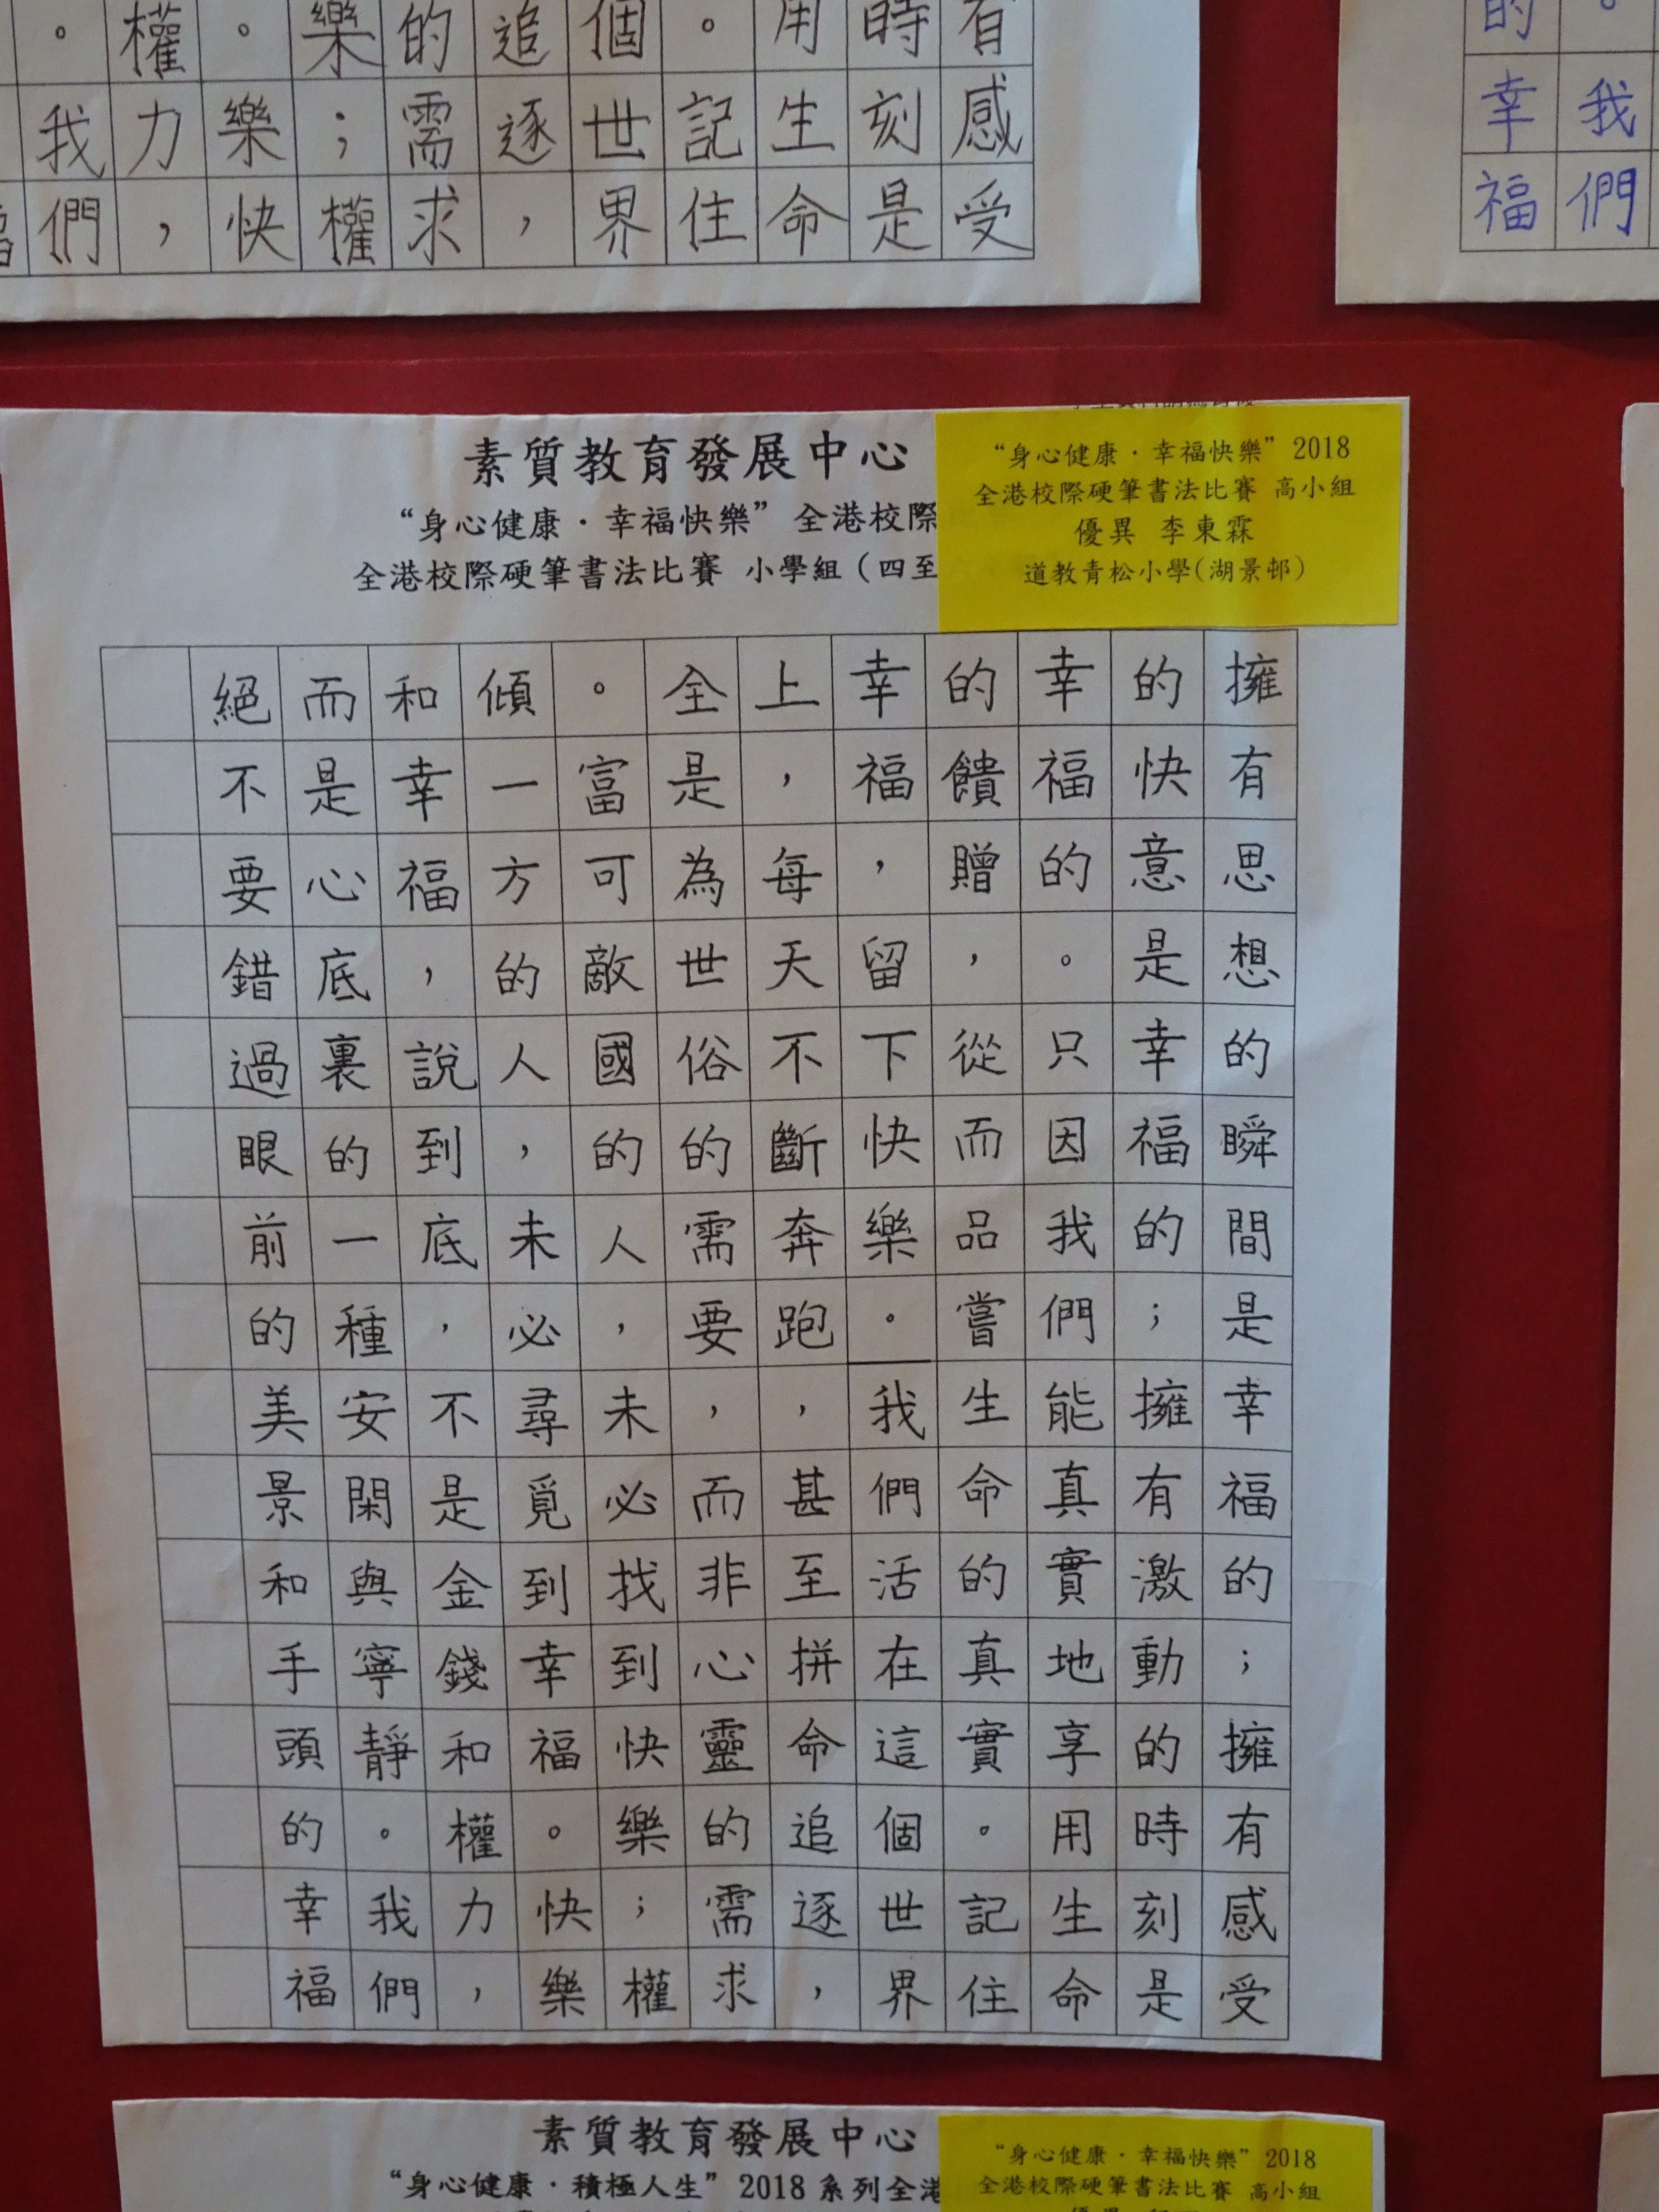 有感受
時刻是
用生命
。記住
個世界
追逐，
的需求
樂；權
。樂快
權力，
。我們
。我們
的幸福
素質教育發展中心
“身心健康·幸福快樂”全港校際
全港校際硬筆書法比賽 小學組（四至
“身心健康·幸福快樂”2018
全港校際硬筆書法比賽 高小組
優異 李東霖
道教青松小學(湖景邨)
擁有思想的瞬間是幸福的；擁有感受
的快意是幸福的；擁有激動的時刻是
幸福的。只因我們能真實地享用生命
的饋贈，從而品嘗生命的真實。記住
幸福，留下快樂。我們活在這個世界
上，每天不斷奔跑，甚至拼命追逐，
全是為世俗的需要，而非心靈的需求
。富可敵國的人，未必找到快樂；權
傾一方的人，未必尋覓到幸福。快樂
和幸福，說到底，不是金錢和權力，
而是心底裏的一種安閑與寧靜。我們
絕不要錯過眼前的美景和手頭的幸福
素質教育發展中心
“身心健康·積極人生”2018系列全港
“身心健康·幸福快樂”2018
全港校際硬筆書法比賽 高小組